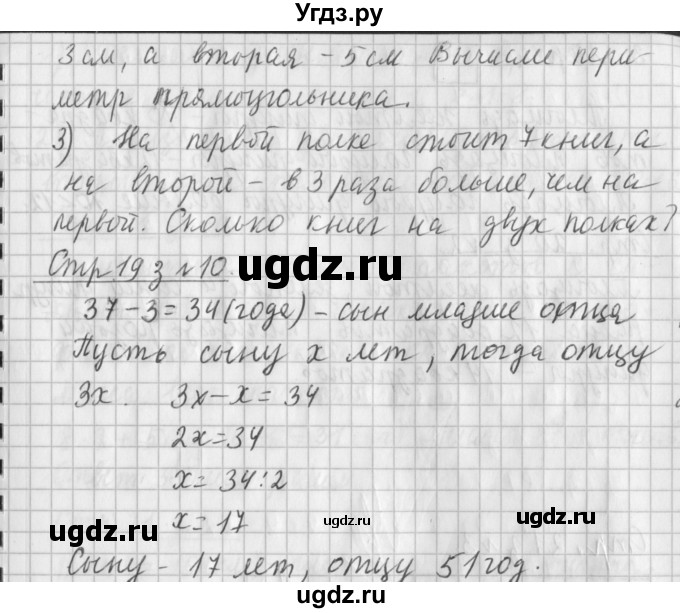 Угдз.ру
3 см, а вторая – 5 см Вычисли пери-
метр прямоугольника.
3) На первой полке стоит 7 книг, а
на второй – в 3 раза больше, чем на
первой. Сколько книг на двух полках?
Стр 19 з №10.
ugdz.ru
37 – 3 = 34 (года) – сын младше отца
Пусть сыну x лет, тогда отцу
3x. 3x – x = 34
2x = 34
x = 34:2
ugdz.ru ugdz.ru ugdz.ru
x = 17
Сыну – 17 лет, отцу 51 год.
ugdz.ru